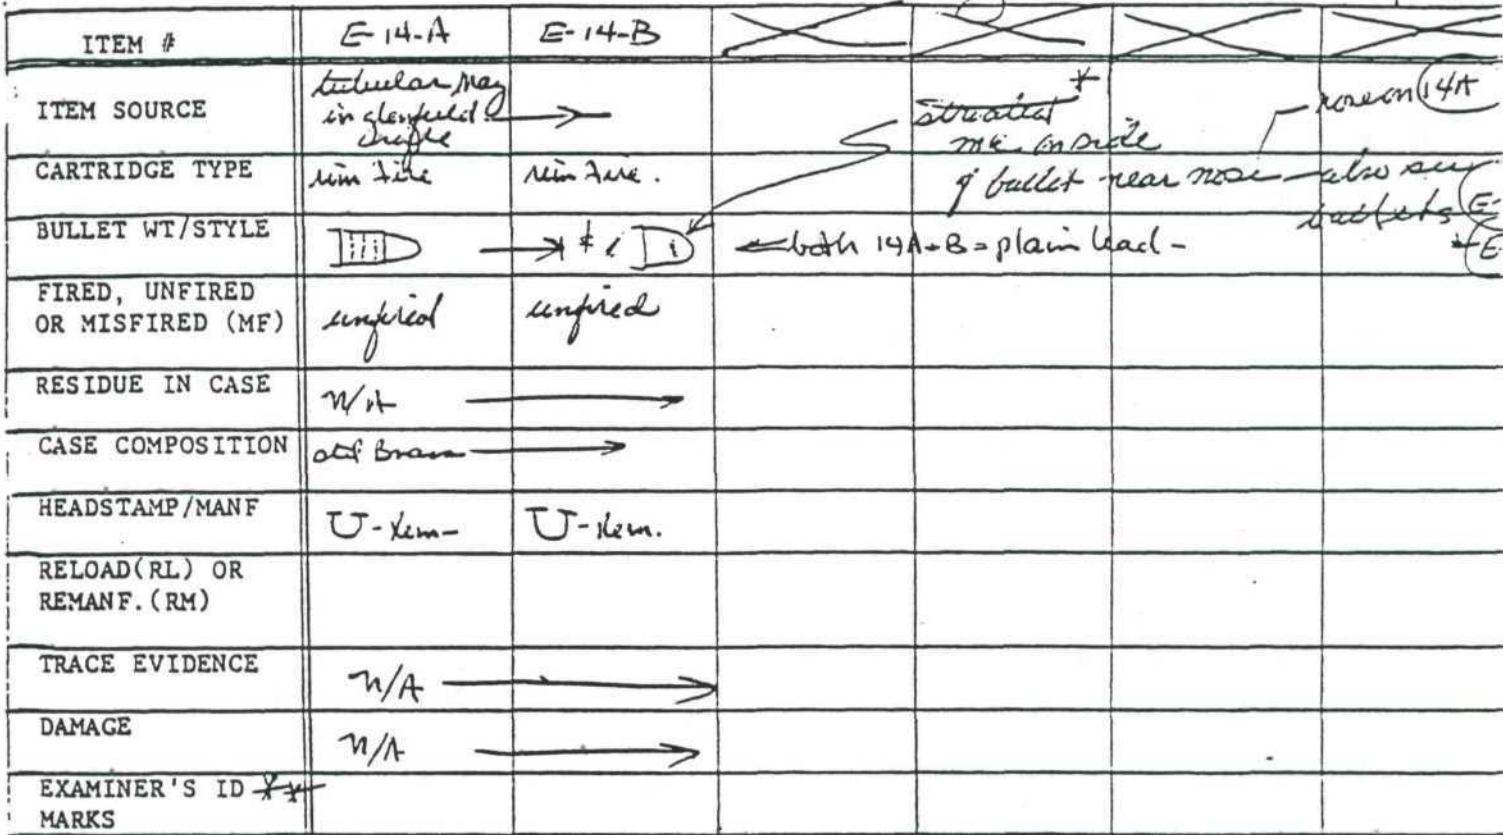 ITEM # E-14-A E-14-B
ITEM SOURCE tubular mag
in glenfield
rifle
striated *
mk on side
of bullet near nose – also see
none on 14A
bullets E-
E-
CARTRIDGE TYPE rim fire rim fire.
BULLET WT/STYLE both 14A+B = plain lead -
FIRED, UNFIRED
OR MISFIRED (MF) unfired unfired
RESIDUE IN CASE N/A
CASE COMPOSITION Brass
HEADSTAMP/MANF U-Rem- U-Rem.
RELOAD(RL) OR
REMANF.(RM)
TRACE EVIDENCE N/A
DAMAGE N/A
EXAMINER'S ID **
MARKS